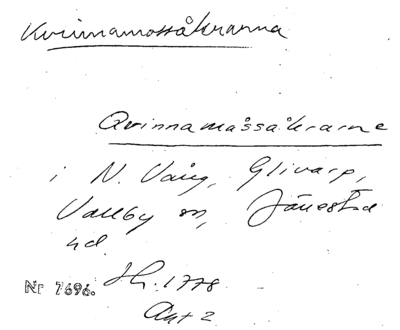 Kvinnamossåkranna
Qvinnamåssåkrarne
i N. Vång, Glivarp,
Vallby sn, Järrestad
hd
Nr 7696. Sk. 1778
Akt 2